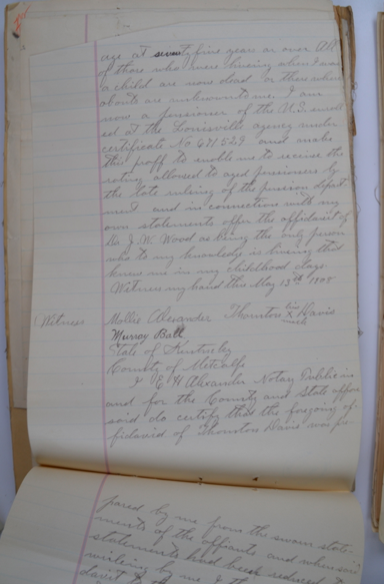 age at seventy five years or over All
of those who were living when I was
a child are now dead or their where
abouts are unknown to me. I am
now a pensioner of the U.S. enroll
ed at the Louisville agency under
certificate No 671.529 and make
this proff to enable me to receive the
rating allowed to aged pensioners by
the late ruling of the pension depart
ment and in connection with my
own statements offer the affidavit of
Dr. J. W. Wood as being the only person
who to my knowledge is living that
knew me in my childhood days
Witness my hand this May 13th 1905
Witness Mollie Alexander Thornton his x mark Davis
Murray Ball
State of Kentucky
County of Metcalfe
I E W Alexander Notary Public in
and for the County and State afore
said do certify that the forgoing af-
fidavid of Thornton Davis was pre-
pared by me from the sworn state-
ments of the affiants and where said
statements had been reduced
writing by me
davit